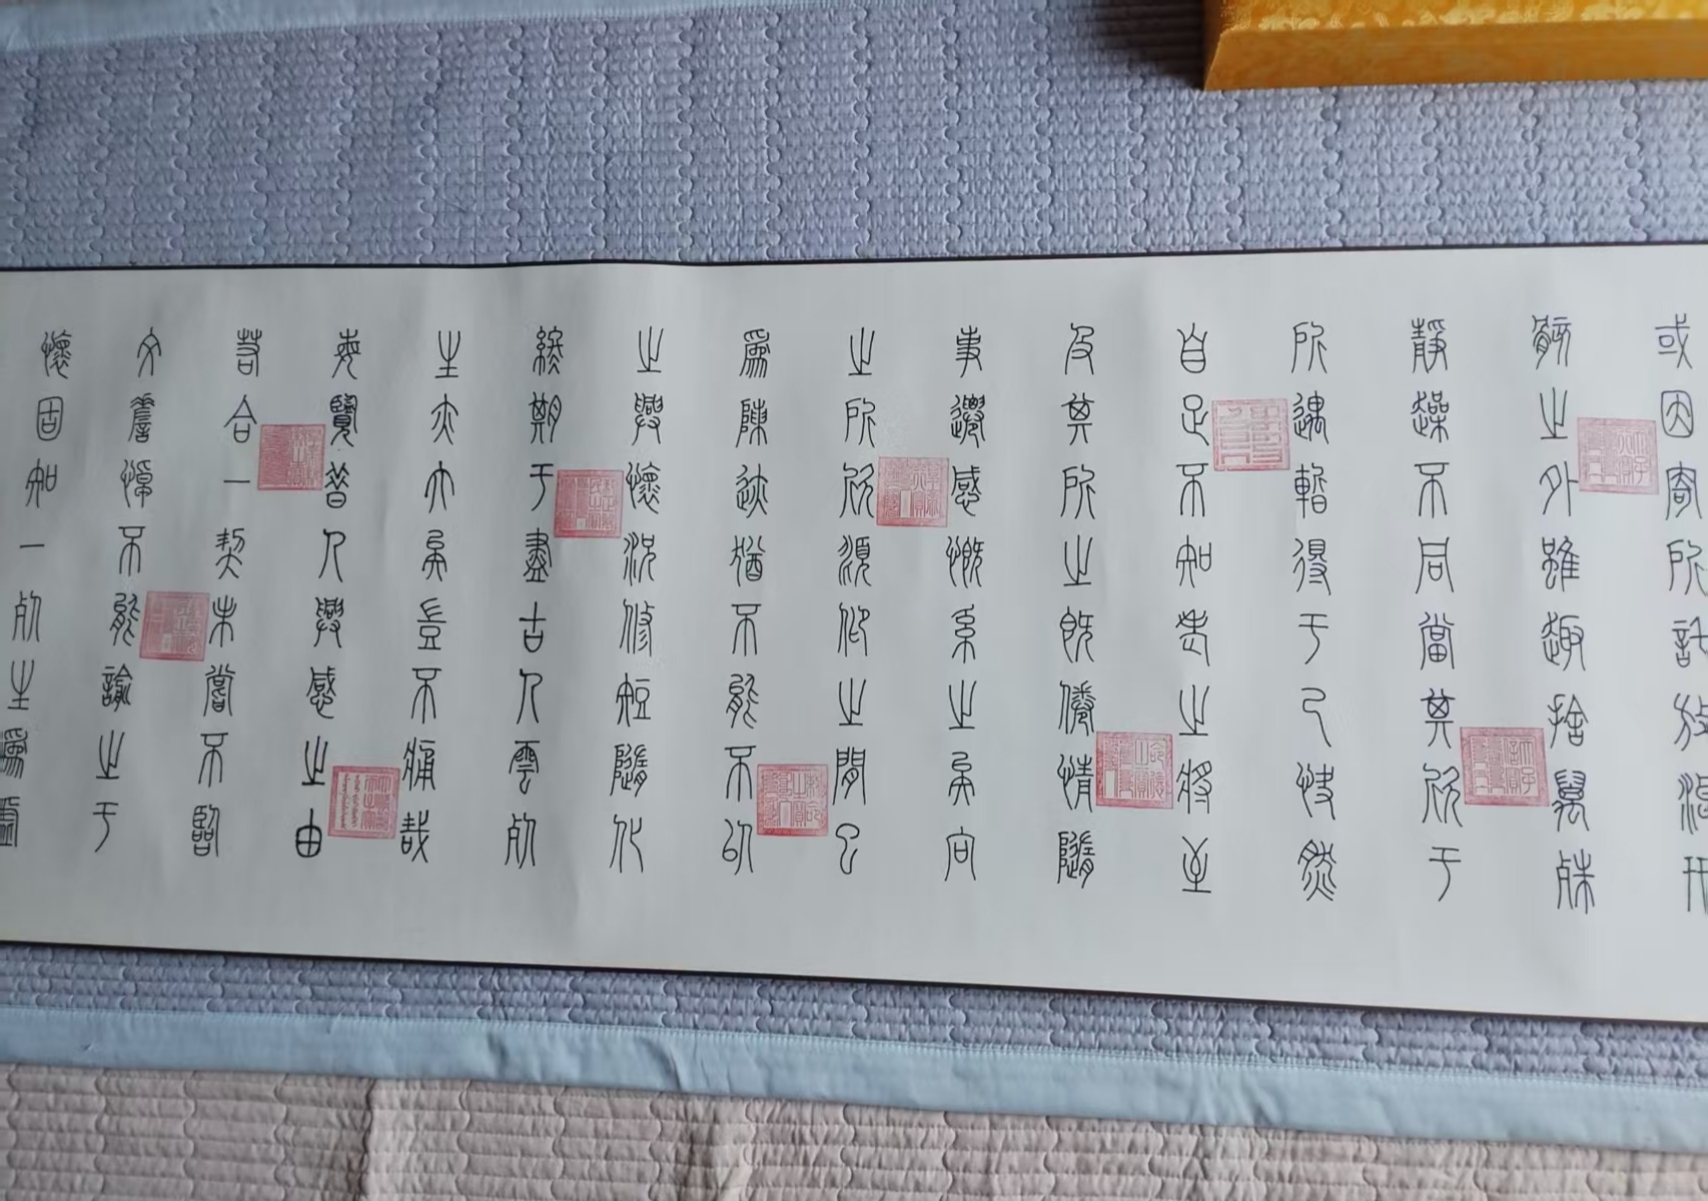 或因寄所託放浪形
骸之外雖趣捨萬殊
靜躁不同當其欣于
所遇暫得于己快然
自足不知老之將至
及其所之既倦情隨
事遷感慨系之矣向
之所欣頫仰之間已
為陳迹猶不能不以
之興懷況修短隨化
終期于盡古人雲死
生亦大矣豈不痛哉
每覽昔人興感之由
若合一契未嘗不臨
文嗟悼不能諭之于
懷固知一死生為虛